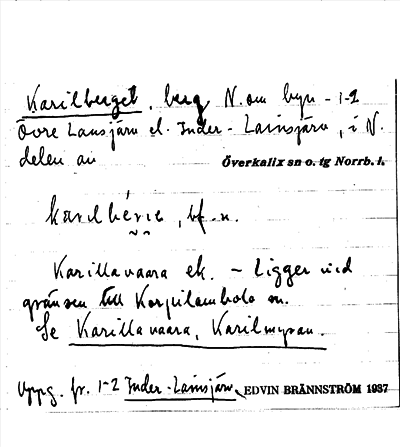 Karilberget, berg N. om byn - 1-2
Övre Lansjärv el. Inder-Lainsjärv, i N.
delen av Överkalix sn o. tg Norrb. l.
karilbérje, bf. n.
Karillavaara ek. - Ligger vid
gränsen till Korpilombolo sn.
Se Karillavaara, Karilmyran.
Uppg. fr. 1-2 Inder-Lainsjärv, EDVIN BRÄNNSTRÖM 1937